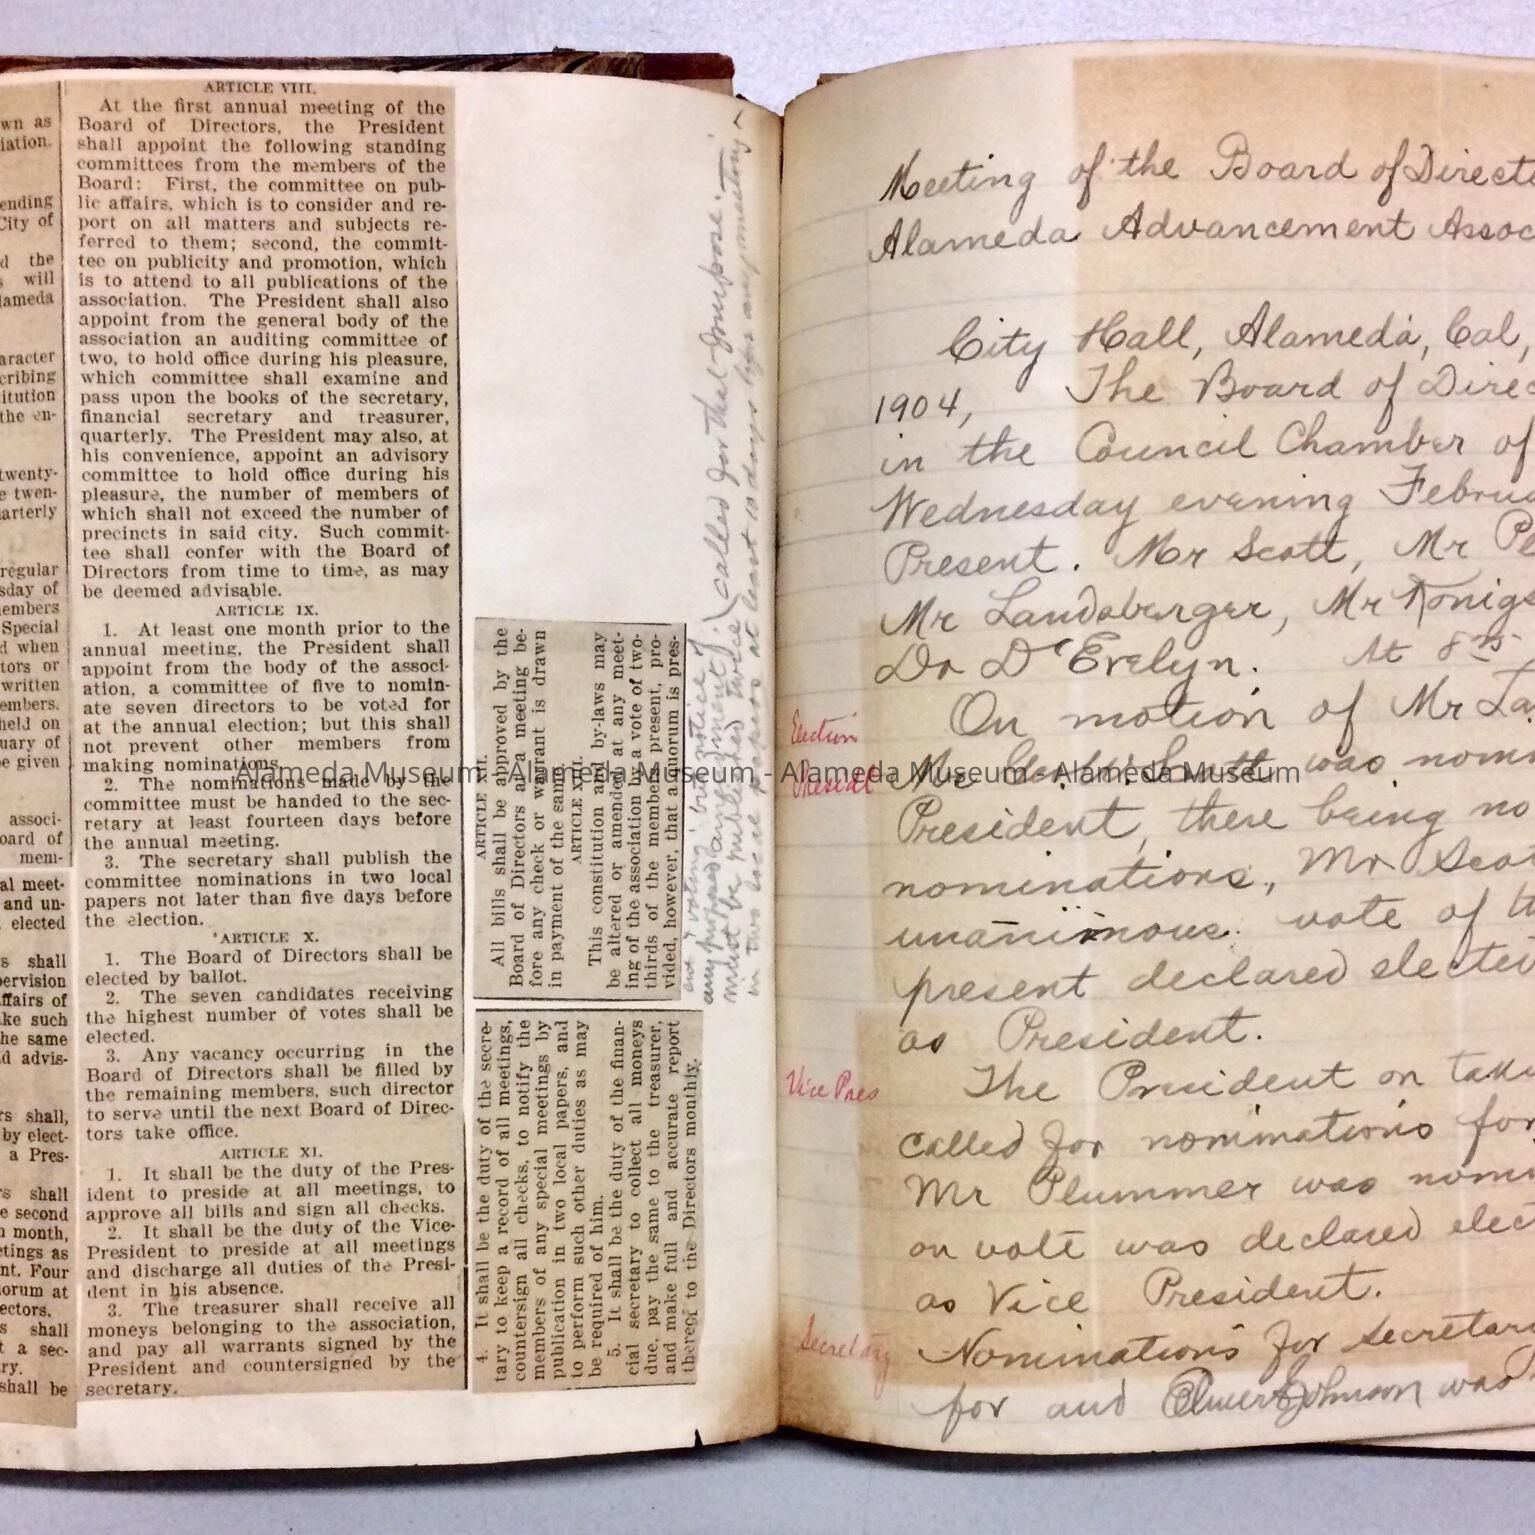 wn as
iation.
ending
City of
d the
s will
lameda
aracter
cribing
itution
the en-
twenty-
e twen-
arterly
regular
sday of
embers
Special
d when
tors or
written
embers.
held on
uary of
e given
associ-
oard of
mem-
al meet-
and un-
elected
s shall
pervision
ffairs of
ake such
he same
d advis-
rs shall,
by elect-
a Pres-
rs shall
e second
h month,
etings as
nt. Four
orum at
ectors.
s shall
t a sec-
ry.
shall be
ARTICLE VIII.
At the first annual meeting of the
Board of Directors, the President
shall appoint the following standing
committees from the members of the
Board: First, the committee on pub-
lic affairs, which is to consider and re-
port on all matters and subjects re-
ferred to them; second, the commit-
tee on publicity and promotion, which
is to attend to all publications of the
association. The President shall also
appoint from the general body of the
association an auditing committee of
two, to hold office during his pleasure,
which committee shall examine and
pass upon the books of the secretary,
financial secretary and treasurer,
quarterly. The President may also, at
his convenience, appoint an advisory
committee to hold office during his
pleasure, the number of members of
which shall not exceed the number of
precincts in said city. Such commit-
tee shall confer with the Board of
Directors from time to time, as may
be deemed advisable.
ARTICLE IX.
1. At least one month prior to the
annual meeting, the President shall
appoint from the body of the associ-
ation, a committee of five to nomin-
ate seven directors to be voted for
at the annual election; but this shall
not prevent other members from
making nominations.
2. The nominations made by the
committee must be handed to the sec-
retary at least fourteen days before
the annual meeting.
3. The secretary shall publish the
committee nominations in two local
papers not later than five days before
the election.
ARTICLE X.
1. The Board of Directors shall be
elected by ballot.
2. The seven candidates receiving
the highest number of votes shall be
elected.
3. Any vacancy occurring in the
Board of Directors shall be filled by
the remaining members, such director
to serve until the next Board of Direc-
tors take office.
ARTICLE XI.
1. It shall be the duty of the Pres-
ident to preside at all meetings, to
approve all bills and sign all checks.
2. It shall be the duty of the Vice-
President to preside at all meetings
and discharge all duties of the Presi-
dent in his absence.
3. The treasurer shall receive all
moneys belonging to the association,
and pay all warrants signed by the
President and countersigned by the
secretary.
4. It shall be the duty of the secre-
tary to keep a record of all meetings,
countersign all checks, to notify the
members of any special meetings by
publication in two local papers, and
to perform such other duties as may
be required of him.
5. It shall be the duty of the finan-
cial secretary to collect all moneys
due, pay the same to the treasurer,
and make full and accurate report
thereof to the Directors monthly.
ARTICLE XII.
All bills shall be approved by the
Board of Directors at a meeting be-
fore any check or warrant is drawn
in payment of the same.
ARTICLE XIII.
This constitution and by-laws may
be altered or amended at any meet-
ing of the association by a vote of two-
thirds of the members present, pro-
vided, however, that a quorum is pres-
ent & voting; but notice of
any proposed amendment called for that purpose.
must be published twice
in two local papers at least 10 days before any meeting
Meeting of the Board of Directo
Alameda Advancement Assoc
City Hall, Alameda, Cal,
1904, The Board of Direc
in the Council Chamber of
Wednesday evening Februa
Present. Mr Scott, Mr Pl
Mr Landsberger, Mr Konigs
Dr D'Evelyn. At 8 15
Election On motion of Mr La
President Mr Scott was nomi
President, there being no
nominations, Mr Scot
unanimous vote of th
present declared elected
as President.
Vice Pres The President on taki
called for nominations for
Mr Plummer was nomi
on vote was declared elec
as Vice President.
Secretary Nominations for Secretary
for and Elmer Johnson was
Alameda Museum - Alameda Museum - Alameda Museum - Alameda Museum